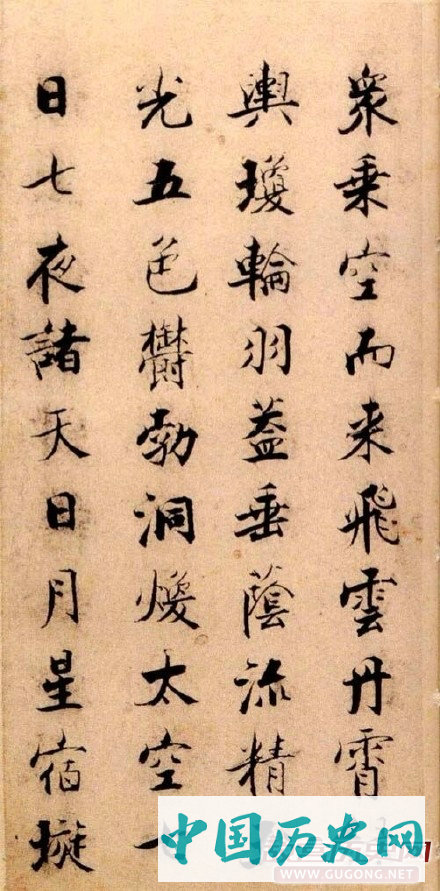 衆乘空而来飛雲丹霄
輿瓊輪羽蓋垂蔭流精
光五色欝勃洞煥太空
日七夜諸天日月星宿璇
中国历史网
WWW.GUGONG.NET